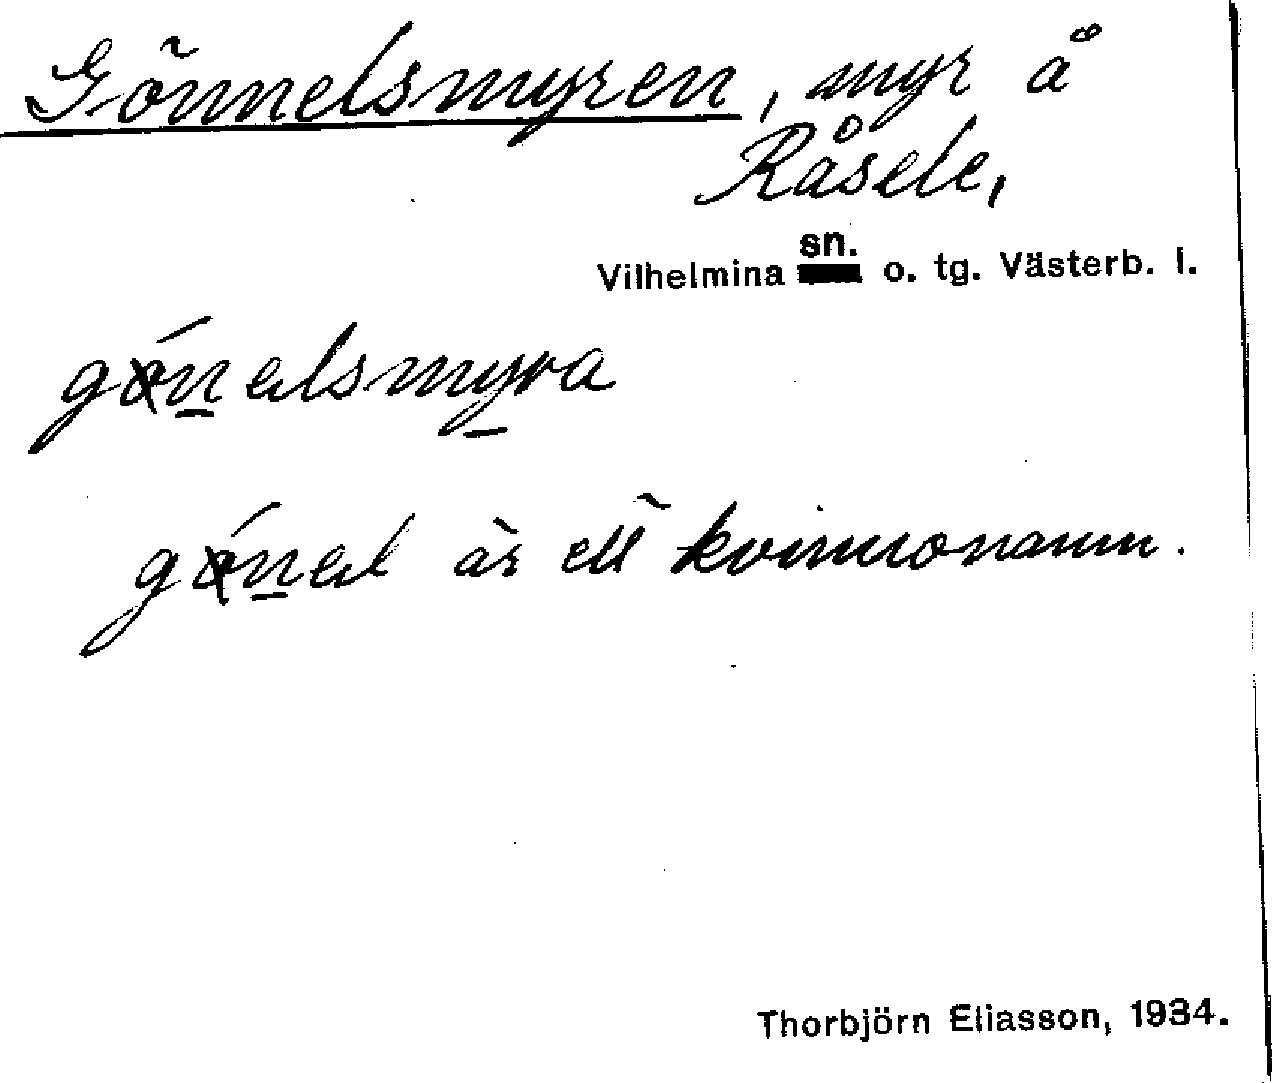 Gönnelsmyren, myr å
Råsele,
Vilhelmina sn. o. tg. Västerb. l.
gǿnelsmyra
gǿnel är ett kvinnonamn.
Thorbjörn Eliasson, 1934.